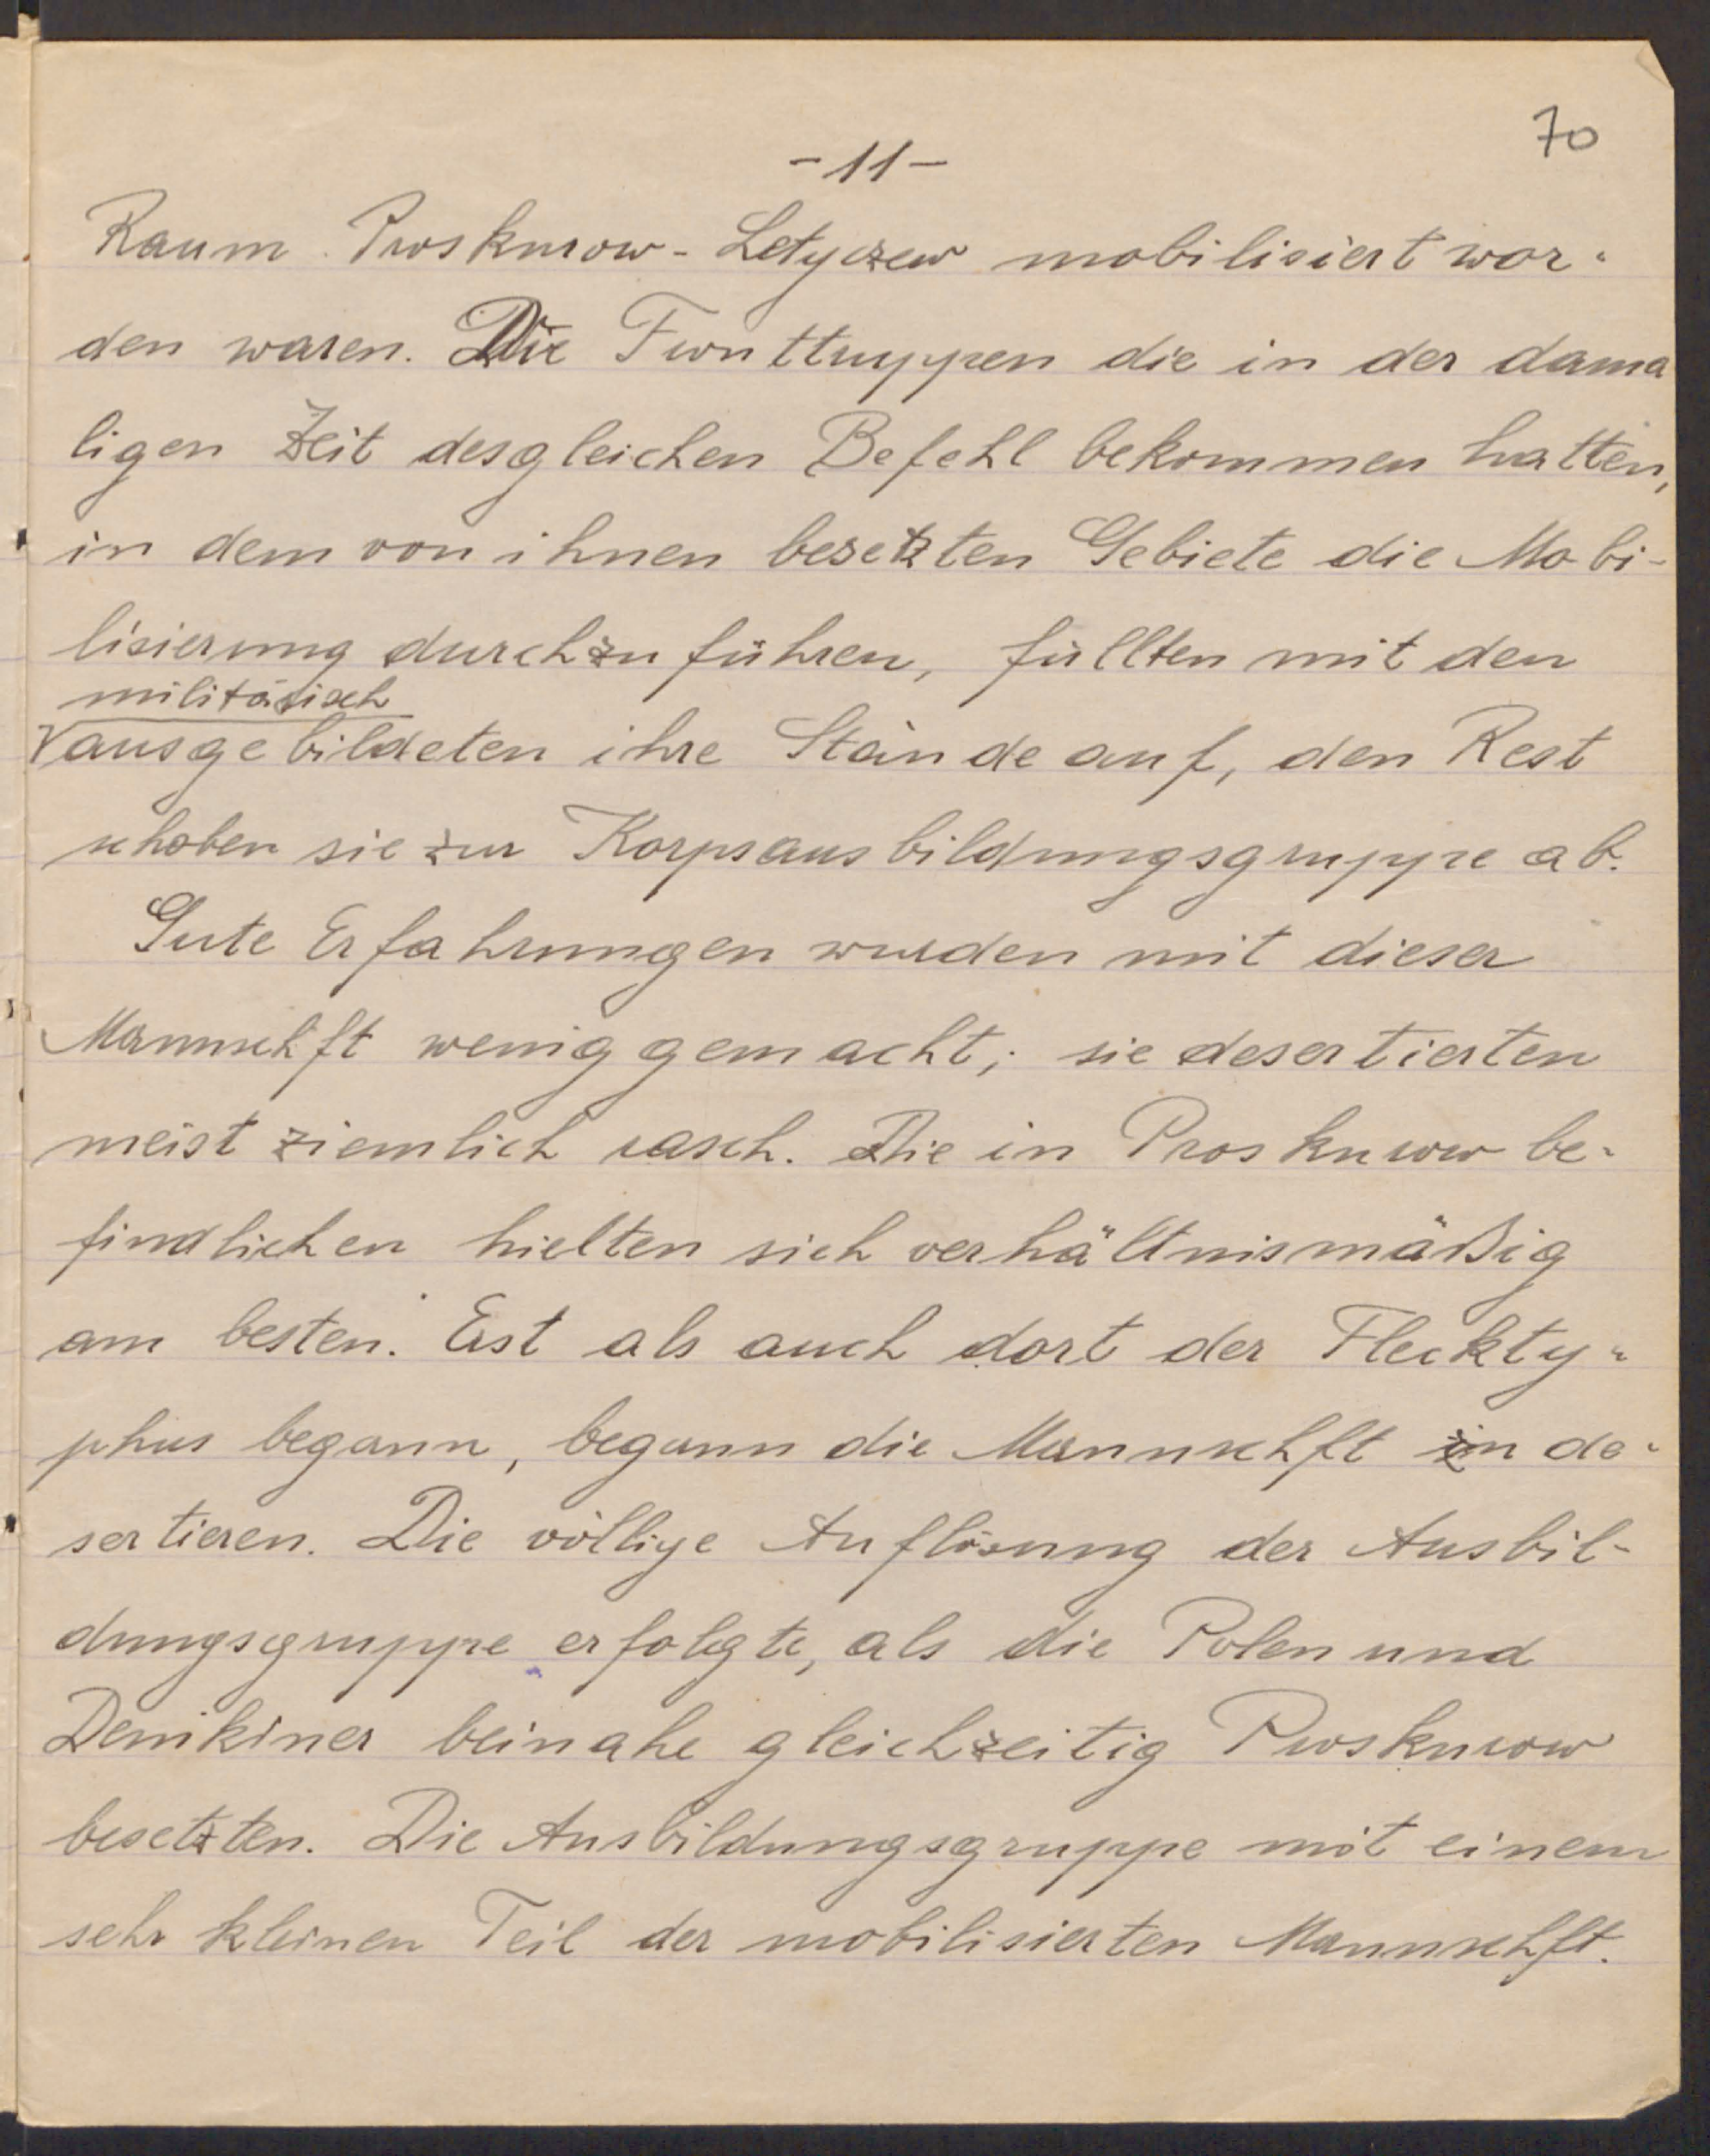 70
-11-
Raum Proskurow-Letyczew mobilisiert wor-
den waren. Die Fronttruppen die in der dama
ligen Zeit desgleichen Befehl bekommen hatten,
in dem von ihnen besetzten Gebiete die Mobi-
lisierung durchzuführen, füllten mit den
militärisch
ausgebildeten ihre Stände auf, den Rest
schoben sie zur Korpsausbildungsgruppe ab.
Gute Erfahrungen wurden mit dieser
Mannschft wenig gemacht; sie desertierten
meist ziemlich rasch. Die in Proskurow be-
findlichen hielten sich verhältnismäßig
am besten. Erst als auch dort der Fleckty-
phus begann, begann die Mannschft zu de-
sertieren. Die völlige Auflösung der Ausbil-
dungsgruppe erfolgte, als die Polen und
Denikiner beinahe gleichzeitig Proskurow
besetzten. Die Ausbildungsgruppe mit einem
sehr kleinen Teil der mobilisierten Mannschft.